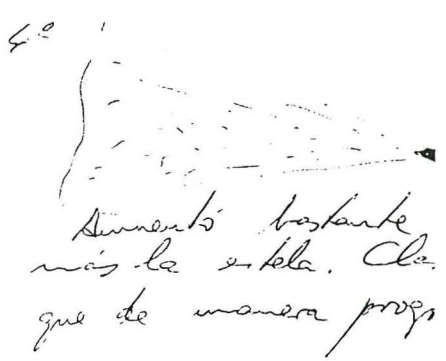 4º
Aumentó bastante
más la estela. Cla
que de manera progr